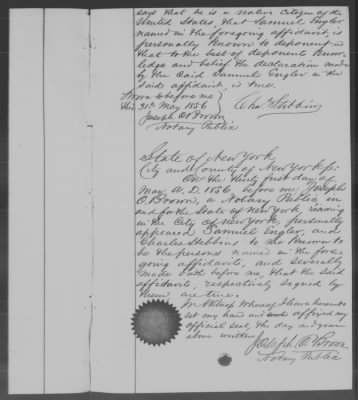 says that he is a native Citizen of the
United States, that Samuel Engler
named in the foregoing affidavit, is
personally Known to deponent &
that to the best of deponents Know-
ledge and belief the declaration made
by the said Samuel Engler in the
said affidavit, is true.
Sworn to before me
this 31st May 1856
Chas Stebbins
Joseph O Brown
Notary Public
State of New York
City and County of New York ss:
On the thirty first day of
May A.D. 1856, before me Joseph
O. Brown, a Notary Public in
and for the State of New York, residing
in the City of New York, personally
appeared Samuel Engler, and
Charles Stebbins to me Known to
be the persons named in the fore-
going affidavits, and severally
made oath before me, that the said
affidavits, respectively signed by
them are true:
In Witness Whereof I have hereunto
set my hand and affixed my
official seal, the day and year
above written
Joseph O Brown
Notary Public